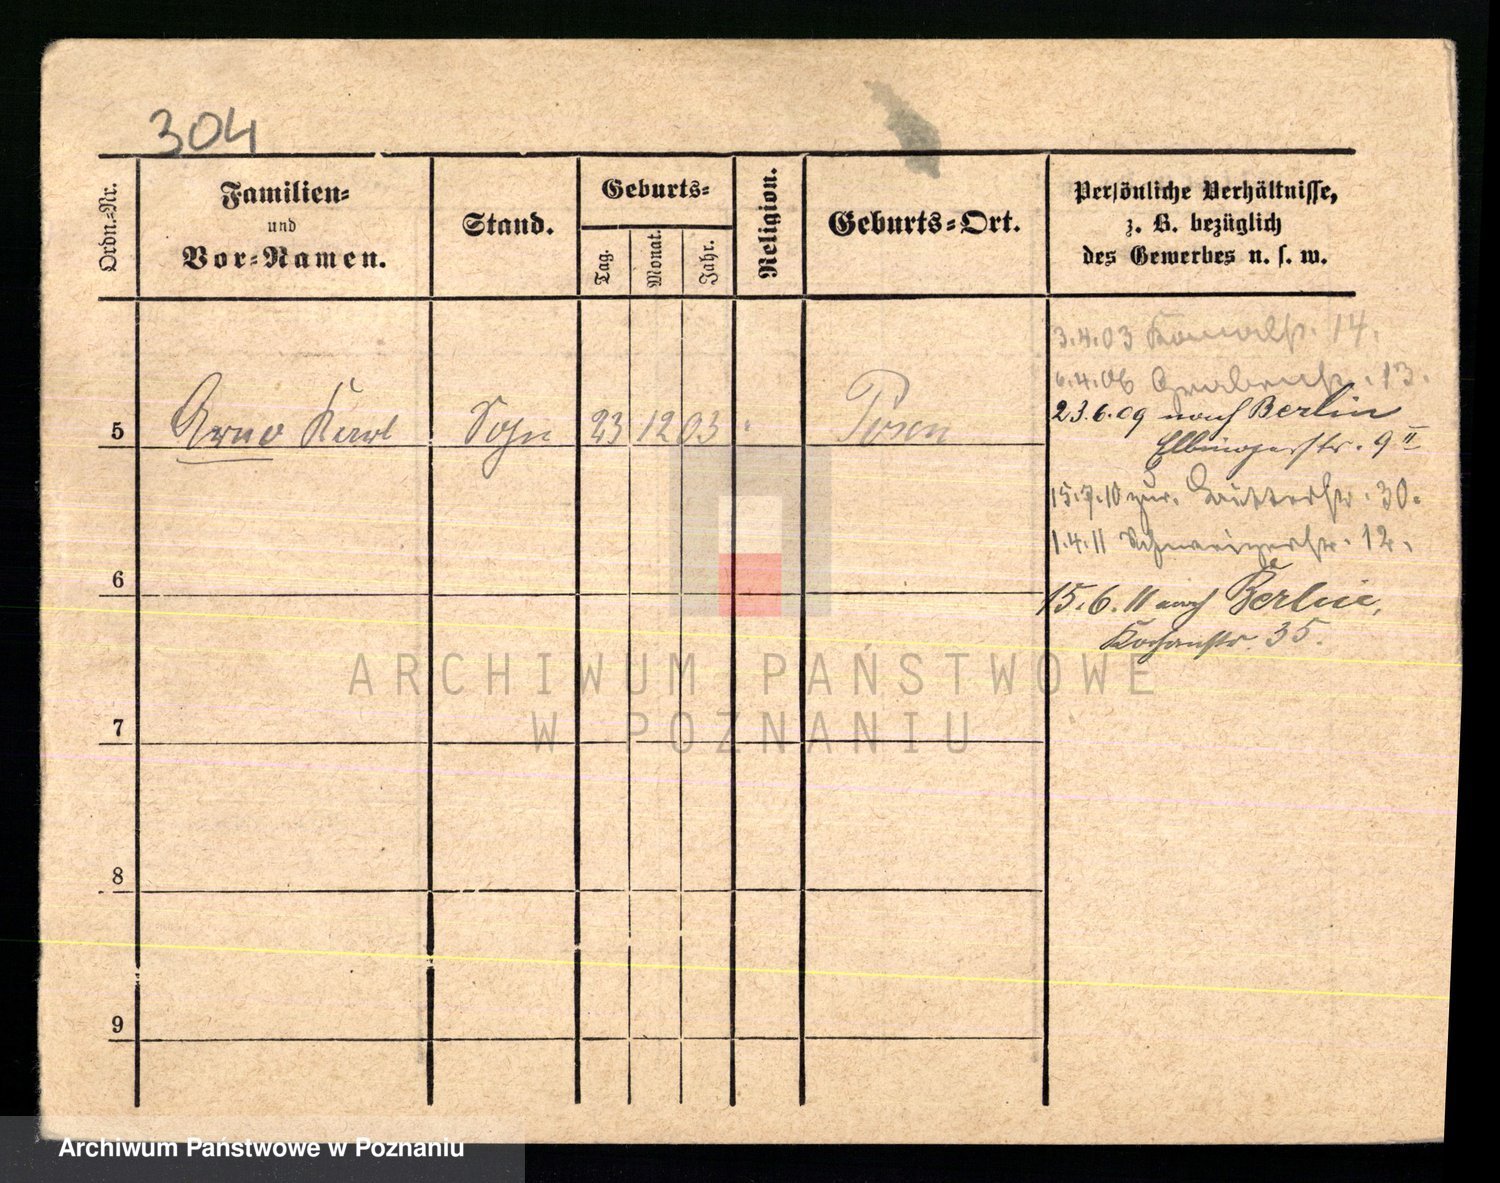 304
Ordn.-Nr.
Familien-
und
Vor-Namen.
Stand.
Geburts-
Tag.
Monat.
Jahr.
Religion.
Geburts-Ort.
Persönliche Verhältnisse,
z. B. bezüglich
des Gewerbes u. s. w.
5
Arno Karl
Sohn
23
12
03
"
Posen
3.4.03 14.
6.4.06 13.
23.6.09 nach Berlin
Elbingerstr. 9 II
15.7.10 zur. Ritterstr. 30.
1.4.11 12.
15.6.11 nach Berlin,
35.
6
7
8
9
ARCHIWUM PAŃSTWOWE
W POZNANIU
Archiwum Państwowe w Poznaniu